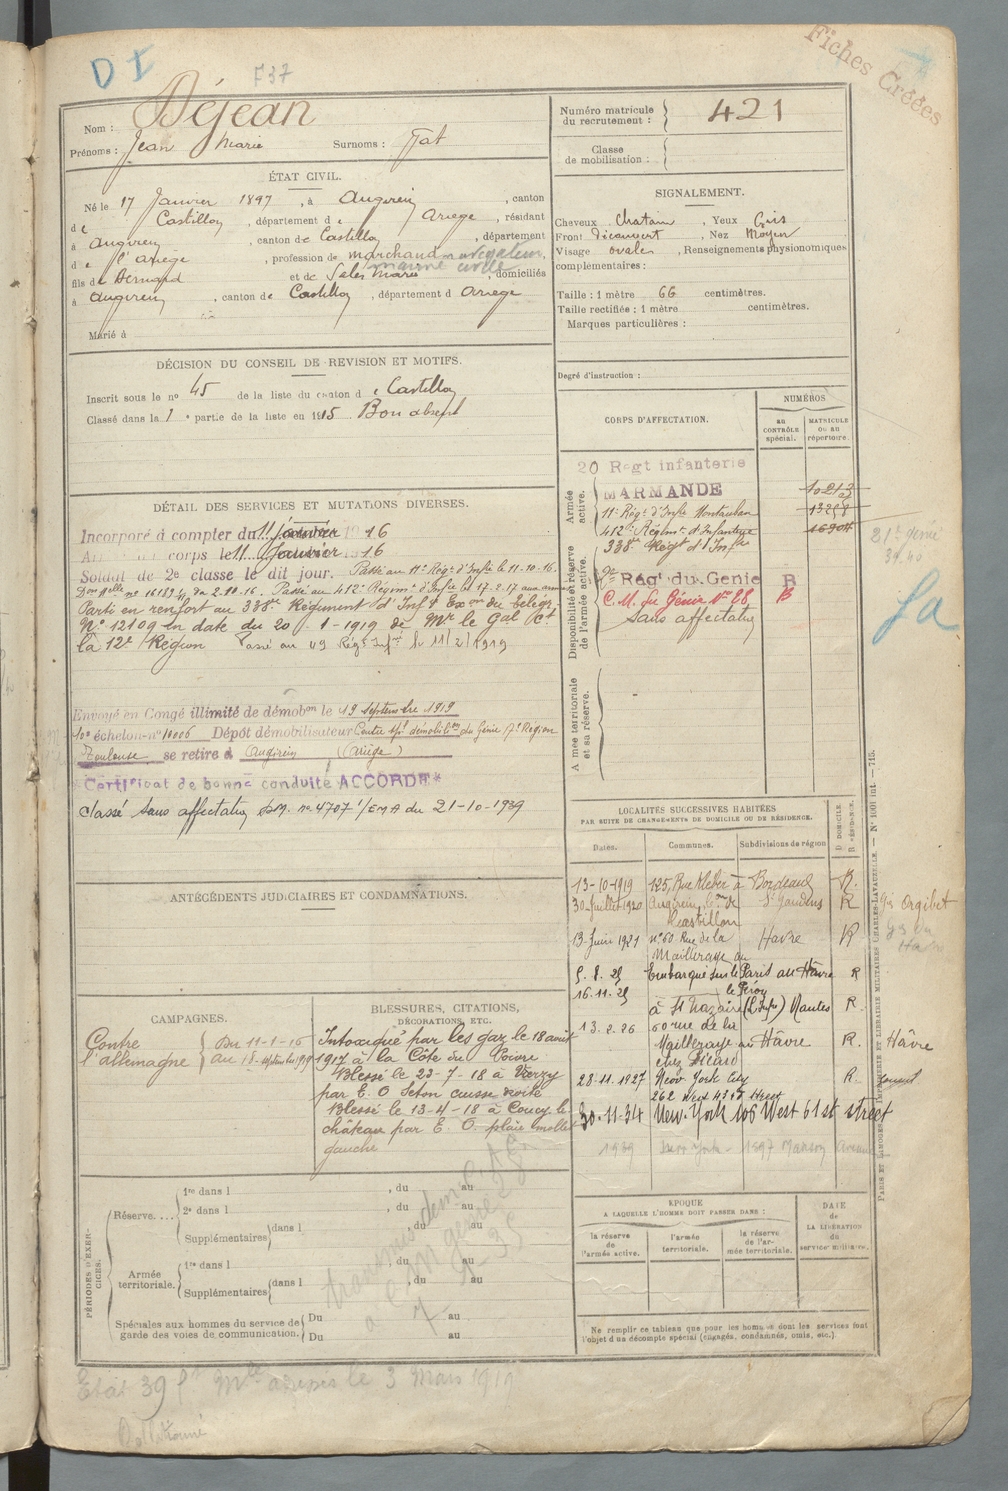 D I
F 37
Fiches Créées
Nom : Déjean
Prénoms : Jean Marie Surnoms : Tat
Numéro matricule du recrutement : 421
Classe de mobilisation :
ÉTAT CIVIL.
Né le 17 Janvier 1897, à Augirein, canton
de Castillon, département de Ariege, résidant
à Augirein, canton de Castillon, département
de l'ariège, profession de marchand navigateur
marine civile
fils de Bernard et de Sales Marie, domiciliés
à Augirein, canton de Castillon, département d Ariege
Marié à
SIGNALEMENT.
Cheveux chatain, Yeux Gris
Front découvert, Nez Moyen
Visage ovale, Renseignements physionomiques
complémentaires :
Taille : 1 mètre 66 centimètres.
Taille rectifiée : 1 mètre centimètres.
Marques particulières :
Degré d'instruction :
DÉCISION DU CONSEIL DE REVISION ET MOTIFS.
Inscrit sous le no 45 de la liste du canton de Castillon
Classé dans la 1e partie de la liste en 1915 Bon absent
CORPS D'AFFECTATION.
NUMÉROS
au CONTRÔLE spécial.
MATRICULE ou au répertoire.
Armée active.
20 Regt infanterie
MARMANDE
11e Régt d'Infie Montauban
412e Régimt d'Infanterie
338e Régt d'Infie
Disponibilité et réserve de l'armée active.
Régt du Genie B
C.M. du Génie No 28 B
Sans affectation
Armée territoriale et sa réserve.
21e génie
39 40
Sa
DÉTAIL DES SERVICES ET MUTATIONS DIVERSES.
Incorporé à compter du 11 Janvier 1916
Arrivé au corps le 11 Janvier 1916
Soldat de 2e classe le dit jour. Passé au 11e Régt d'Infie le 11-10-16.
Passé au 412e Régimt d'Infie le 17-2-17 aux armées
Parti en renfort au 338e Régiment d'Inf
No 12109 en date du 20-1-1919 de Mr le Gal Ct
la 12e Région Passé au 49 Régt Infie le 11/2/1919
Envoyé en Congé illimité de démobon le 19 septembre 1919
10e échelon no 10006 Dépôt démobilisateur Centre démobilon du Génie 17e Région
Toulouse se retire à Augirein (Ariège)
*Certificat de bonne conduite ACCORDÉ*
Classé sans affectation D.M. no 4707 1/EMA du 21-10-1939
ANTÉCÉDENTS JUDICIAIRES ET CONDAMNATIONS.
LOCALITÉS SUCCESSIVES HABITÉES
PAR SUITE DE CHANGEMENTS DE DOMICILE OU DE RÉSIDENCE.
Dates. Communes. Subdivisions de région
D DOMICILE R RÉSIDENCE.
13-10-1919 125, Rue Kleber à Bordeaux R.
30-Juillet 1920 Augirein, Con de Castillon St Gaudens R
Gie Orgibet
13-Juin 1921 no 60 Rue de la Mailleraye au Havre R
5.8.25 Embarqué sur le Paris au Hâvre R
16.11.25 le Pérou
à St Nazaire (L. Infre) Nantes R.
13.2.26 60 rue de la
Mailleraye au Hâvre R. Hâvre
chez Picard
28.11.1927 New York City R.
262 West 43rd Street
30-11-34 New-York 106 West 61st street
1939 New York - 1897 Avenue
CAMPAGNES.
Contre l'allemagne
Du 11-1-16
au 18 septembre 1919
BLESSURES, CITATIONS,
DÉCORATIONS, ETC.
Intoxiqué par les gaz le 18 août
1917 à la Côte du Poivre
Blessé le 23-7-18 à Vierzy
par E. O Seton cuisse droite
Blessé le 13-4-18 à Coucy le
château par E. O. plaie mollet
gauche
PÉRIODES D'EXERCICES.
Réserve....
1re dans l , du au
2e dans l , du au
Supplémentaires dans l , du au
Armée territoriale.
1re dans l , du au
Supplémentaires dans l , du au
Spéciales aux hommes du service de garde des voies de communication.
Du au
Du au
EPOQUE
A LAQUELLE L'HOMME DOIT PASSER DANS :
la réserve de l'armée active.
l'armée territoriale.
la réserve de l'armée territoriale.
DATE de LA LIBÉRATION du service militaire.
Ne remplir ce tableau que pour les hommes dont les services font
l'objet d'un décompte spécial (engagés, condamnés, omis, etc.).
PARIS ET LIMOGES, IMPRIMERIE ET LIBRAIRIE MILITAIRES CHARLES-LAVAUZELLE. — No 1001 int. — 715.